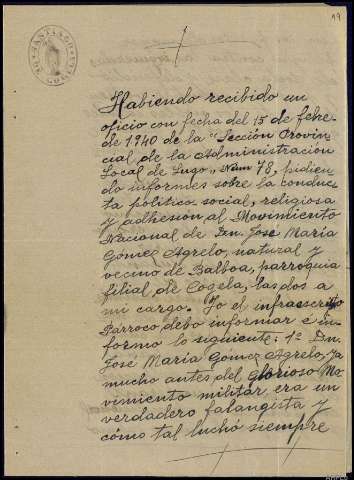 19
SANTIAGO
Habiendo recibido un
oficio con fecha del 15 de febre-
de 1940 de la "Sección Provin-
cial de la Administración
Local de Lugo, Núm 78, pidien-
do informes sobre la conduc-
ta político social, religiosa
y adhesión al Movimiento
Nacional de Dn. José María
Gómez Agrelo, natural y
vecino de Balboa, parroquia
filial de Cogela, las dos a
mi cargo. Yo el infraescrito
Párroco debo informar é in-
formo lo siguiente: 1º Dn.
José María Gómez Agrelo, ya
mucho antes del Glorioso Mo-
vimiento militar era un
verdadero falangista y
cómo tal luchó siempre